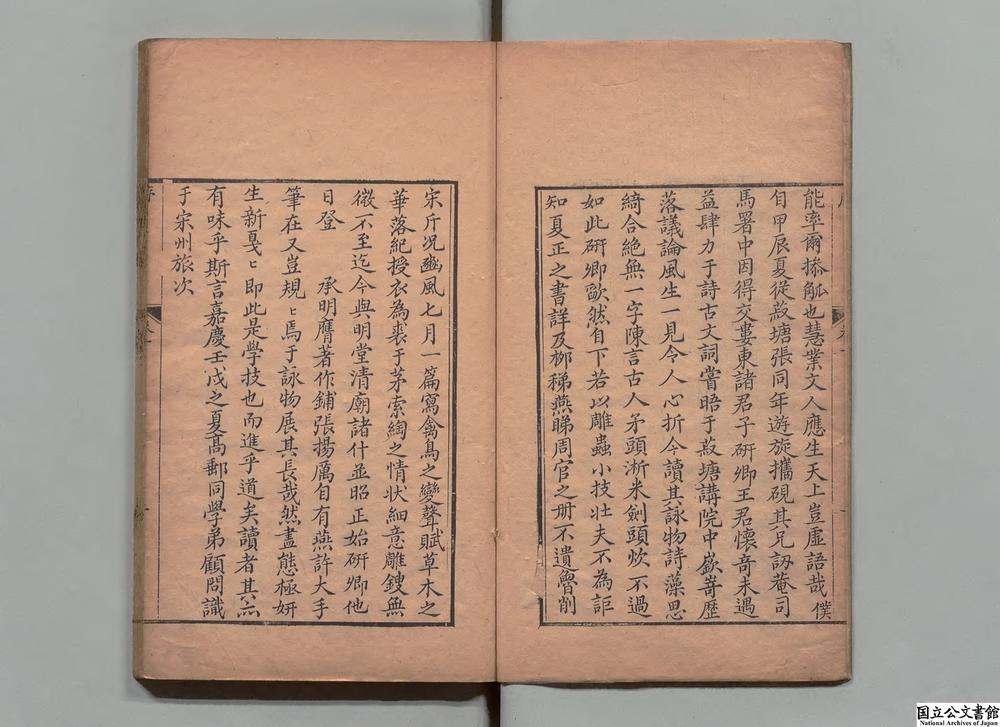 能率爾搽觚也慧業文人應生天上豈虛語哉僕
自甲辰夏從菽塘張同年遊旋攜硯其兄訒菴司
馬署中因得交婁東諸君子研卿王君懷奇未遇
益肆力于詩古文詞嘗晤于菽塘講院中嶔嵜歷
落議論風生一見令人心折今讀其詠物詩藻思
綺合絕無一字陳言古人矛頭淅米劍頭炊不過
如此研卿歐然自下若以雕蟲小技壯夫不為詎
知夏正之書詳及栁稊燕睇周官之册不遺魯削
宋斤况豳風七月一篇寫禽鳥之變聲賦草木之
華落紀授衣為裘于茅索綯之情状細意雕鎪無
微不至迄今與明堂清廟諸什並昭正始研卿他
日登　承明膺著作鋪張揚厲自有燕許大手
筆在又豈規〻焉于詠物展其長哉然盡態極妍
生新戛〻即此是學技也而進乎道矣讀者其亦
有味乎斯言嘉慶壬戌之夏髙郵同學弟顧問識
于宋州旅次
序
卷一
国立公文書館
National Archives of Japan